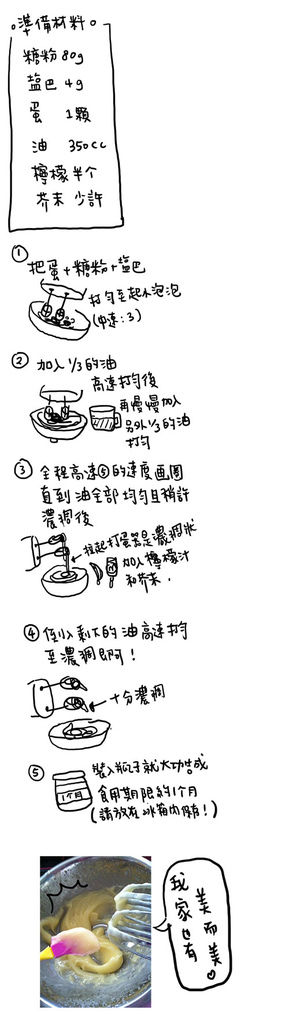 。準備材料。
糖粉 80g
塩巴 4g
蛋 1顆
油 350cc
檸檬半个
芥末 少許
①
把蛋+糖粉+塩巴
打勻至起小泡泡
(中速:3)
② 加入1/3的油
高速打勻後
再慢慢加入
另外1/3的油
打勻
③ 全程高速⑤的速度画圈
直到油全部均勻且稍許
濃稠後
拉起打蛋器是濃稠狀
加入檸檬汁
和芥末.
④ 倒入剩下的油高速打勻
至濃稠即可!
十分濃稠
⑤ 裝入瓶子就大功告成
1个月
食用期限約1个月
(請放在冰箱內保存!)
我家也有
美而美♡